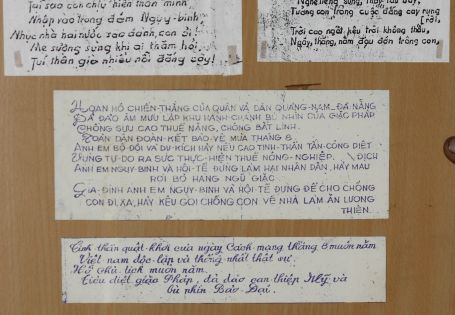 Tui sao còn chịu hiến thân mình
Nhập vào trong đám Ngụy-binh
Nhục nhã hai nước sao đành, con ơi!
Mẹ sượng sùng khi ai thăm hỏi,
Tui thân già nhiều nỗi đắng cay!
Nghe tiếng súng,
Tưởng con trong cuộc đắng cay rụng
rời,
Trời cao ngất kêu trời không thấu,
Ngày, tháng, năm đau đớn trông con,
HOAN HÔ CHIẾN-THẮNG CỦA QUÂN VÀ DÂN QUẢNG-NAM-ĐÀ NẴNG
ĐẢ ĐẢO ÂM MƯU LẬP KHU HÀNH CHÁNH BÙ NHÌN CỦA GIẶC PHÁP
CHỐNG SƯU CAO THUẾ NẶNG, CHỐNG BẮT LÍNH.
TOÀN DÂN ĐOÀN-KẾT BẢO-VỆ MÙA THÁNG 8
ANH EM BỘ-ĐỘI VÀ DU-KÍCH HÃY NÊU CAO TINH-THẦN TẬN-CÔNG DIỆT
VÙNG TỰ-DO RA SỨC THỰC-HIỆN THUẾ NÔNG-NGHIỆP. ĐỊCH
ANH EM NGỤY-BINH VÀ HỘI-TỀ ĐỪNG LÀM HẠI NHÂN DÂN, HÃY MAU
RỜI BỎ HÀNG NGŨ GIẶC
GIA-ĐÌNH ANH EM NGỤY-BINH VÀ HỘI-TỀ ĐỪNG ĐỂ CHO CHỒNG
CON ĐI XA, HÃY KÊU GỌI CHỒNG CON VỀ NHÀ LÀM ĂN LƯƠNG
THIỆN
Tinh thần quật-khởi của ngày Cách-mạng tháng 8 muôn năm
Việt-nam độc-lập và thống nhất thật sự.
Hồ chủ-tịch muôn năm.
Tiêu diệt giặc Pháp, đả đảo can thiệp Mỹ và
bù nhìn Bảo-Đại.